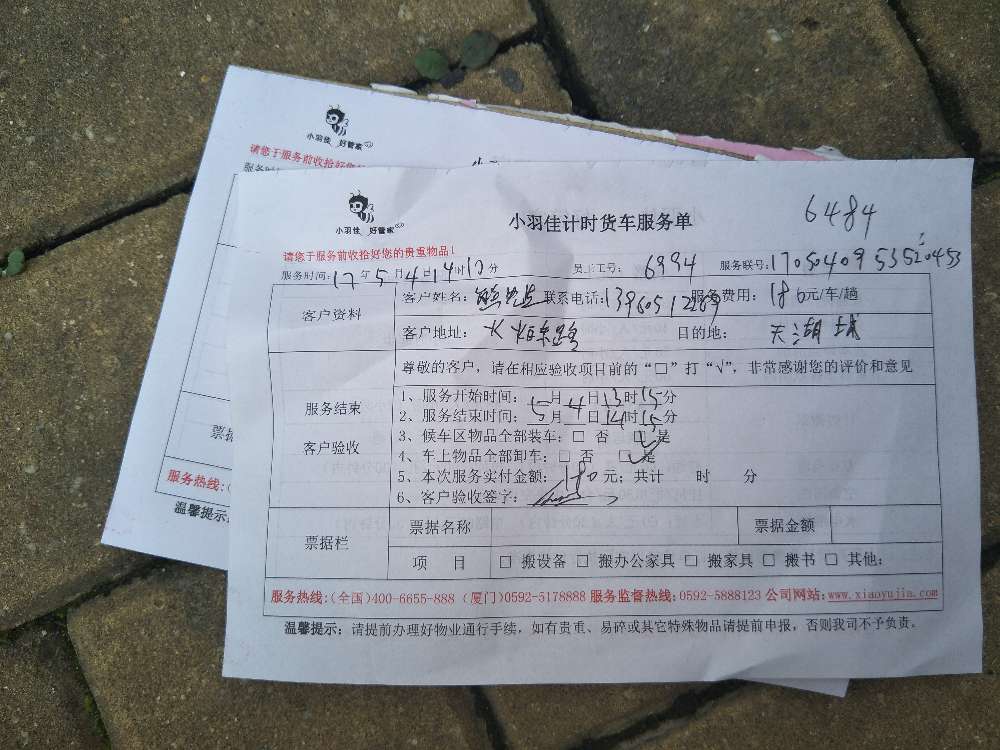 小羽佳 好管家
请您于服务前收拾好您
服务时
票据
服务热线:(
温馨提示:
小羽佳 好管家
小羽佳计时货车服务单
6484
请您于服务前收拾好您的贵重物品!
服务时间:17年5月4日14时10分 员工工号: 6994 服务联号:
客户资料
客户姓名: 联系电话: 服务费用: 180元/车/趟
客户地址: 火炬东路 目的地: 天湖城
服务结束
客户验收
尊敬的客户,请在相应验收项目前的“□”打“√”,非常感谢您的评价和意见
1、服务开始时间:5月4日13时15分
2、服务结束时间:5月4日14时15分
3、候车区物品全部装车:□ 否 □ 是
4、车上物品全部卸车:□ 否 □ 是
5、本次服务实付金额:180元;共计 时 分
6、客户验收签字:
票据栏
票据名称 票据金额
项 目 □ 搬设备 □ 搬办公家具 □ 搬家具 □ 搬书 □ 其他:
服务热线:(全国)400-6655-888 (厦门)0592-5178888 服务监督热线:0592-5888123 公司网站:www.xiaoyujia.com
温馨提示:请提前办理好物业通行手续,如有贵重、易碎或其它特殊物品请提前申报,否则我司不予负责。